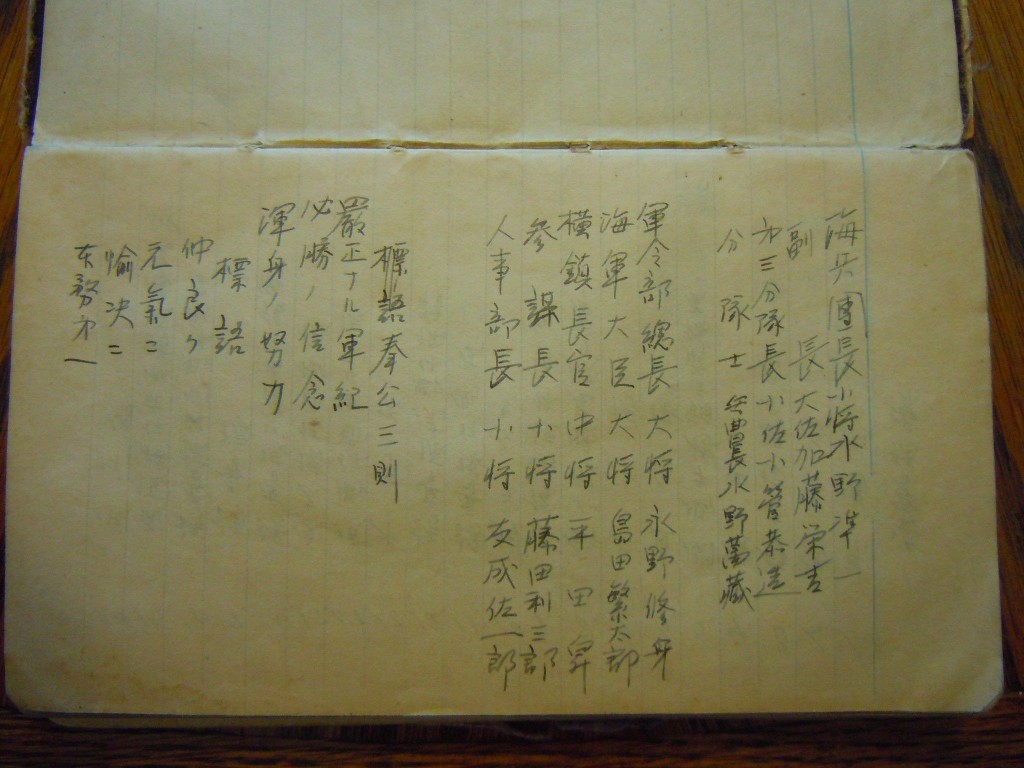 海兵團長小将水野準一
副長大佐加藤栄吉
㐧三分隊長小佐小管恭造
分隊士 兵曹長水野萬藏
軍令部總長大将永野修身
海軍大臣大将島田繁太郎
横鎮長官中将平田昇
参謀長小将藤田利三郎
人事部長小将友成佐一郎
標語奉公三則
嚴正ナル軍紀
必勝ノ信念
渾身ノ努力
標語
仲良ク
元氣ニ
愉決ニ
務㐧一